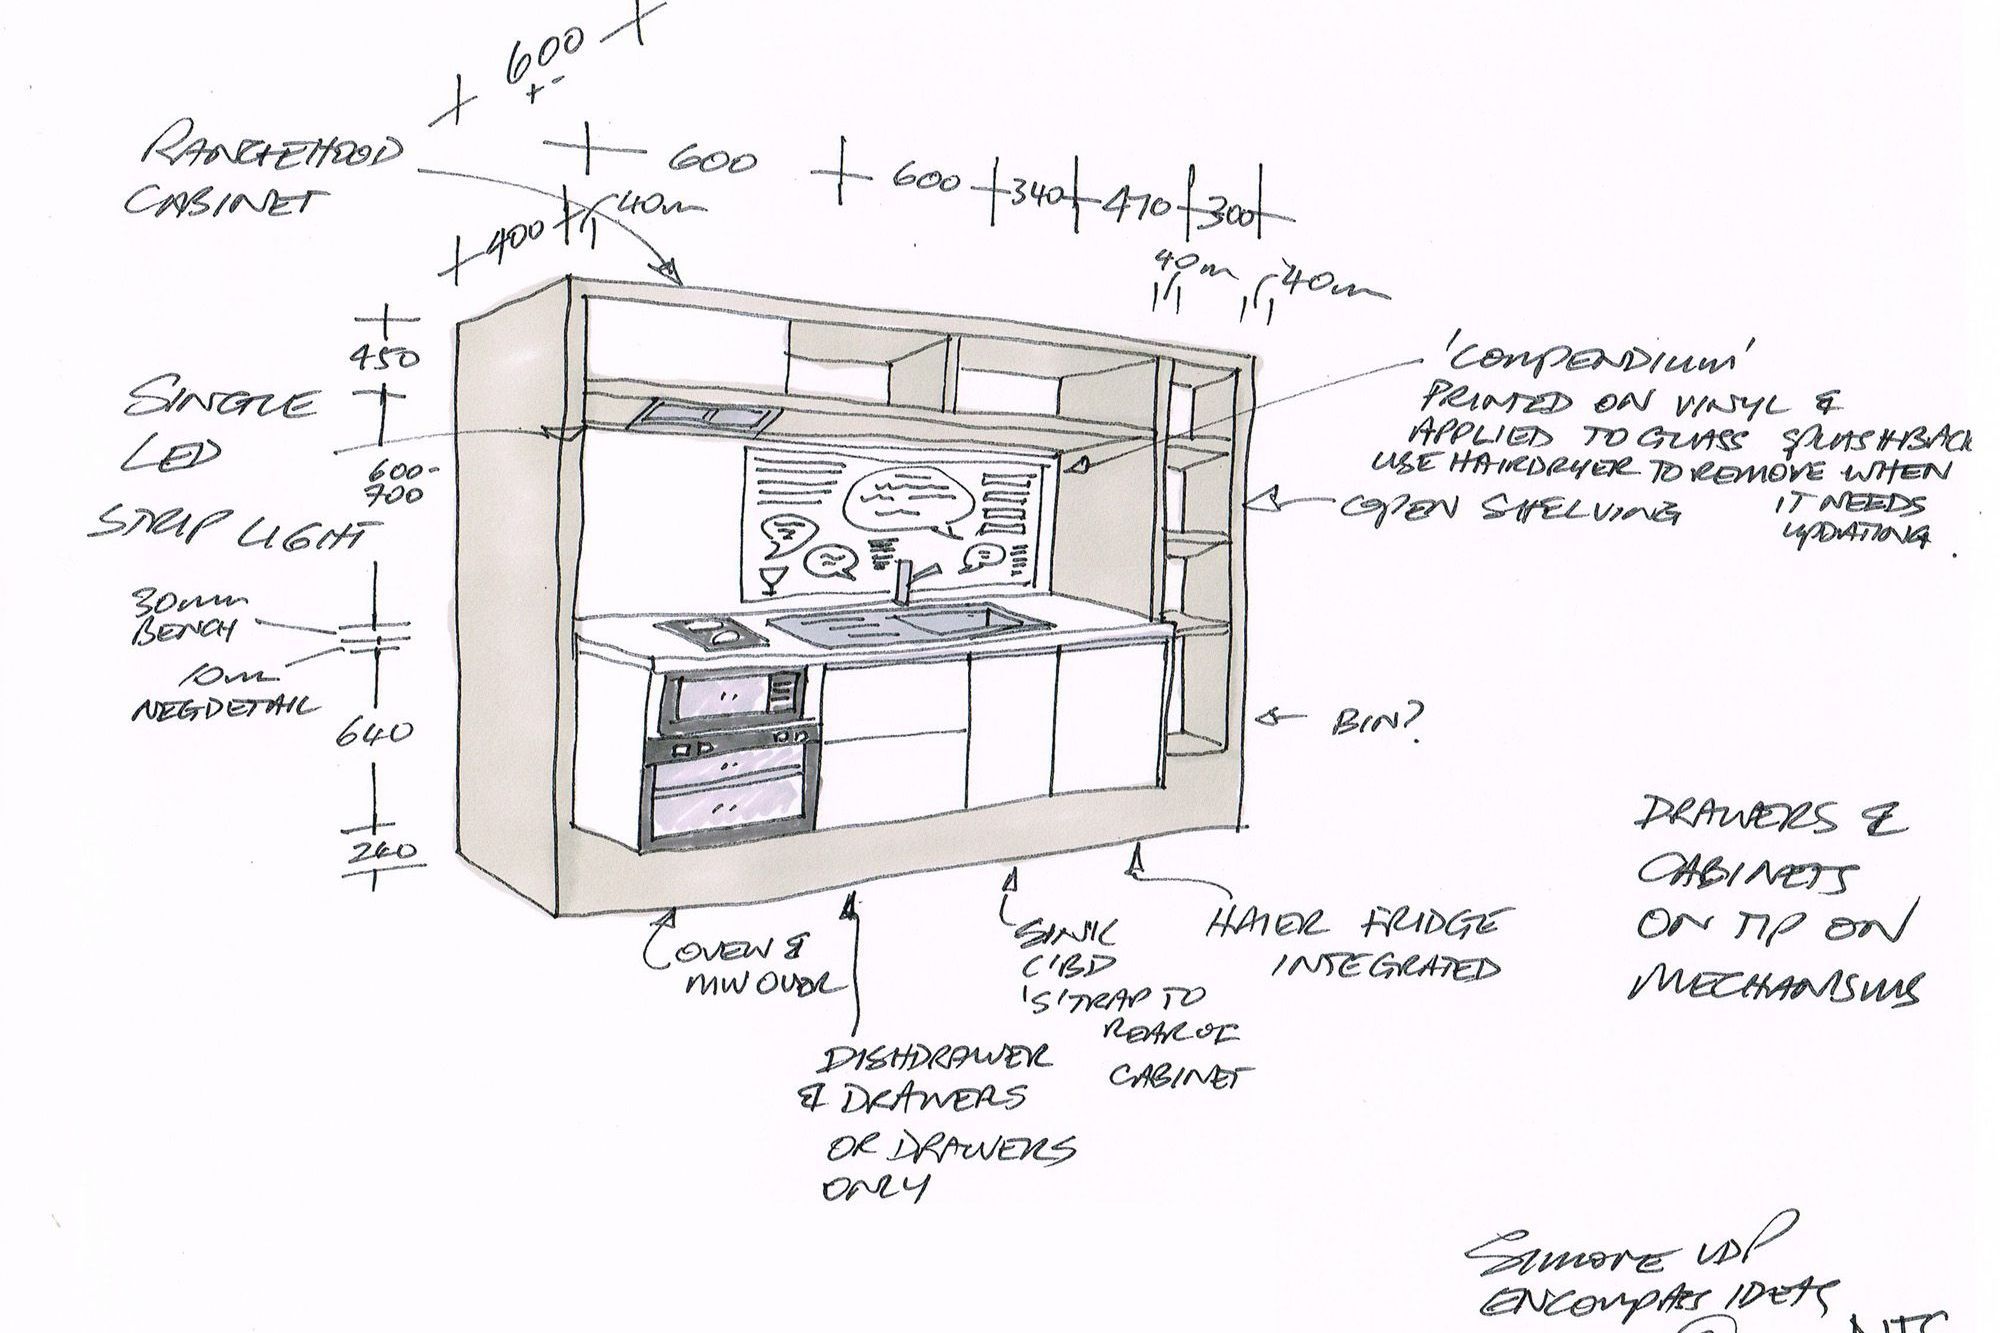 600
+-
RANGEHOOD
CABINET
600
600
340
470
300
400
40m
40m
40m
450
SINGLE
LED
STRIP LIGHT
600-
700
30mm
BENCH
10m
NEG DETAIL
640
240
'COMPENDIUM'
PRINTED ON VINYL &
APPLIED TO GLASS SPLASHBACK
USE HAIRDRYER TO REMOVE WHEN
IT NEEDS
UPDATING.
OPEN SHELVING
BIN?
DRAWERS &
CABINETS
ON TIP ON
MECHANISMS
OVEN &
MW OVER
DISHDRAWER
& DRAWERS
OR DRAWERS
ONLY
SINK
C'BD
'S' TRAP TO
REAR OF
CABINET
HAIER FRIDGE
INTEGRATED
ENCOMPASS IDEAS
NTS